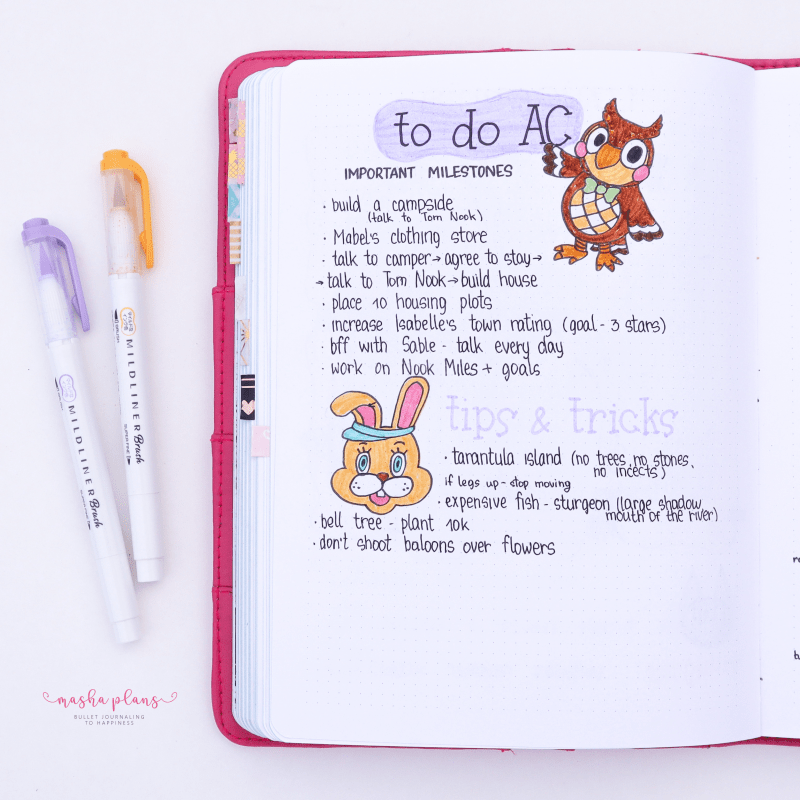 to do AC
IMPORTANT MILESTONES
· build a campside
(talk to Tom Nook)
· Mabel's clothing store
· talk to camper → agree to stay →
→ talk to Tom Nook → build house
· place 10 housing plots
· increase Isabelle's town rating (goal - 3 stars)
· bff with Sable - talk every day
· work on Nook Miles + goals
tips & tricks
· tarantula island (no trees, no stones,
no insects)
if legs up - stop moving
· expensive fish - sturgeon (large shadow
mouth of the river)
· bell tree - plant 10k
· don't shoot baloons over flowers
MILDLINER Brush
MILDLINER Brush
masha plans
BULLET JOURNALING
TO HAPPINESS